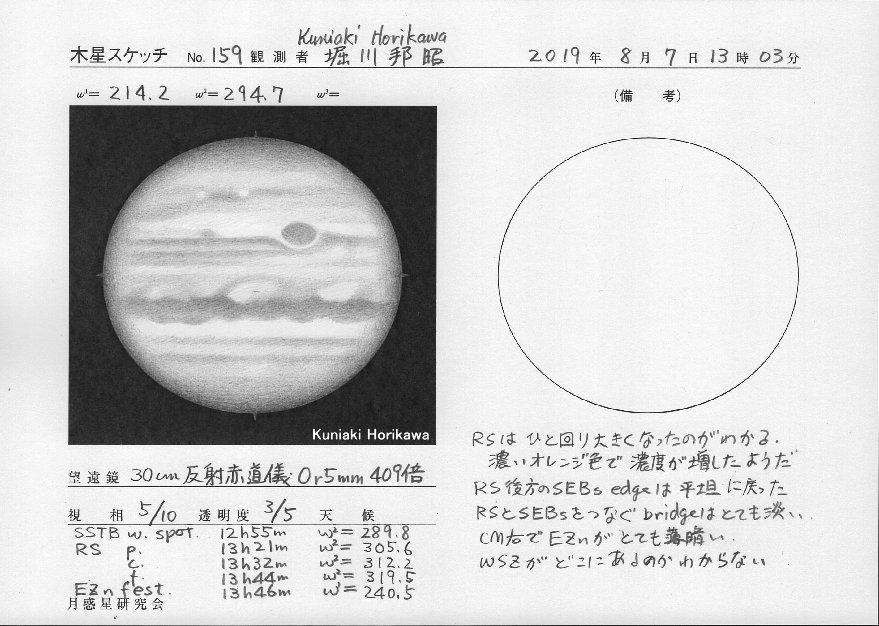 Kuniaki Horikawa
木星スケッチ No. 159 観測者 堀川邦昭 2019年 8月 7日 13時 03分
ω¹= 214.2 ω²= 294.7 ω³=
(備 考)
Kuniaki Horikawa
RSはひと回り大きくなったのがわかる.
濃いオレンジ色で濃度が増したようだ
RS後方のSEBs edgeは平坦に戻った
RSとSEBsをつなぐbridgeはとても淡い.
CM左でEZnがとても薄暗い.
WSZがどこにあるのかわからない
望遠鏡 30cm反射赤道儀 Or5mm 409倍
視 相 5/10 透明度 3/5 天 候
SSTB w. spot. 12h55m ω²= 289.8
RS p. 13h21m ω²= 305.6
c. 13h32m ω²= 312.2
f. 13h44m ω²= 319.5
EZn fest. 13h46m ω¹= 240.5
月惑星研究会